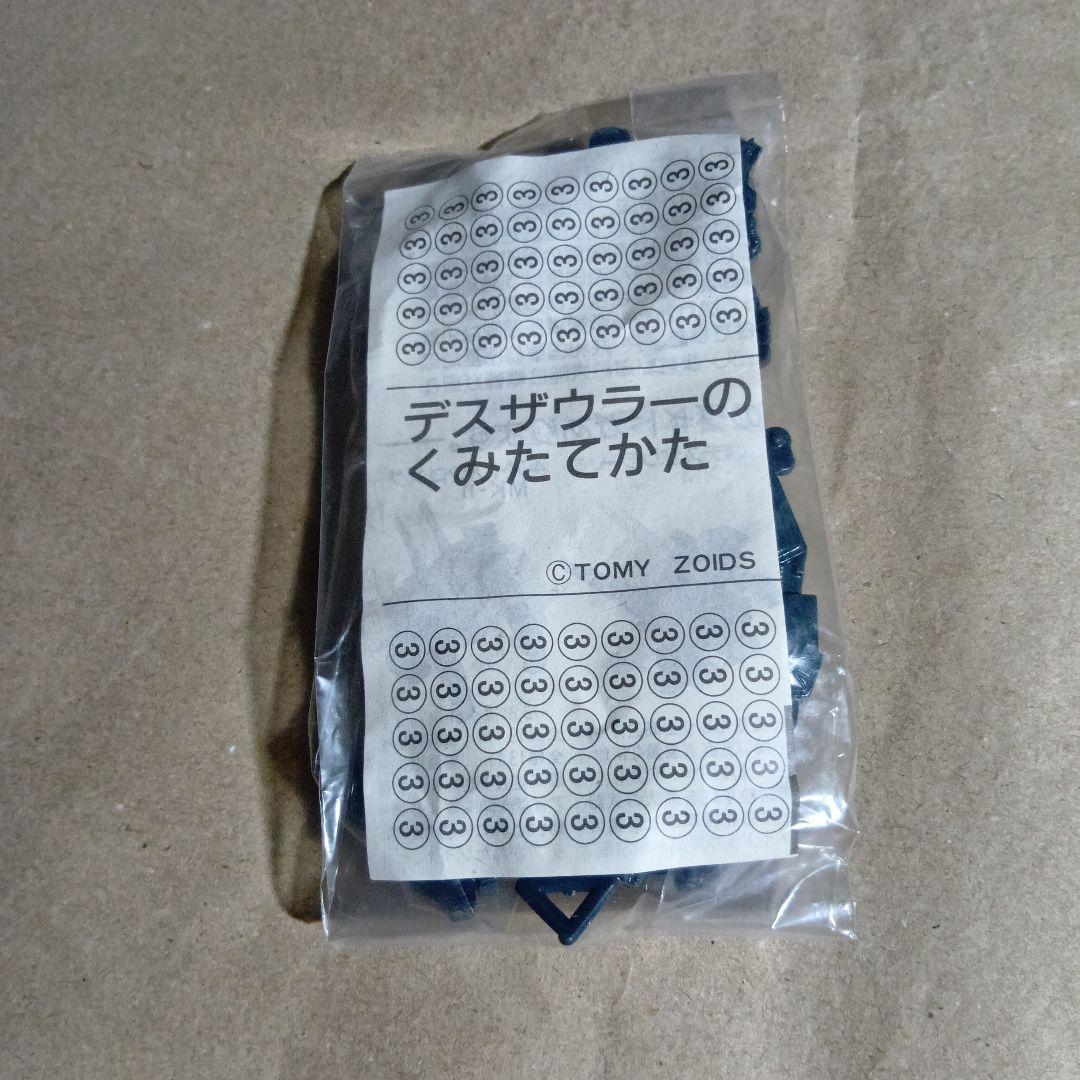 ③③③③③③③③③
③③③③③③③③③
③③③③③③③③③
③③③③③③③③③
③③③③③③③③③
デスザウラーの
くみたてかた
©TOMY ZOIDS
③③③③③③③③③
③③③③③③③③③
③③③③③③③③③
③③③③③③③③③
③③③③③③③③③